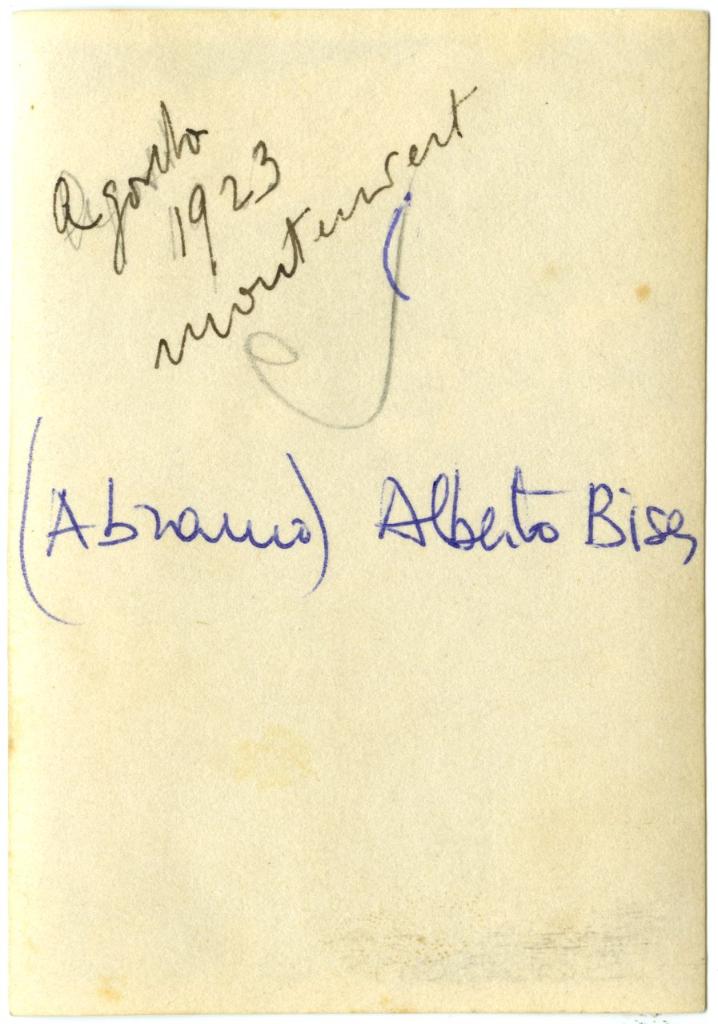 Agosto
1923
montenvert
(Abramo) Alberto Bises